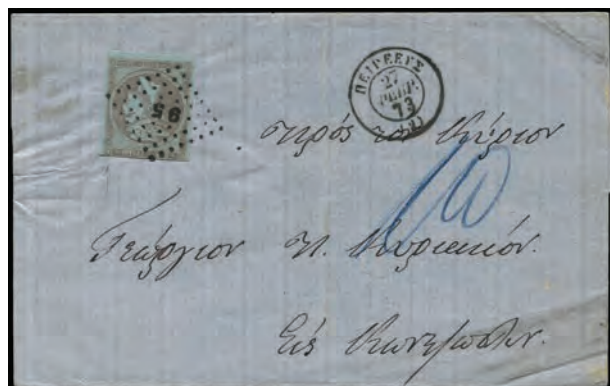 95
ΠΕΙΡΕΕΥΣ
27
ΦΕΒΡ.
73
πρὸς τὸν Κύριον
10
Γεώργιον Π. Κυριακόν.
Εἰς Κωνσ/πολιν.